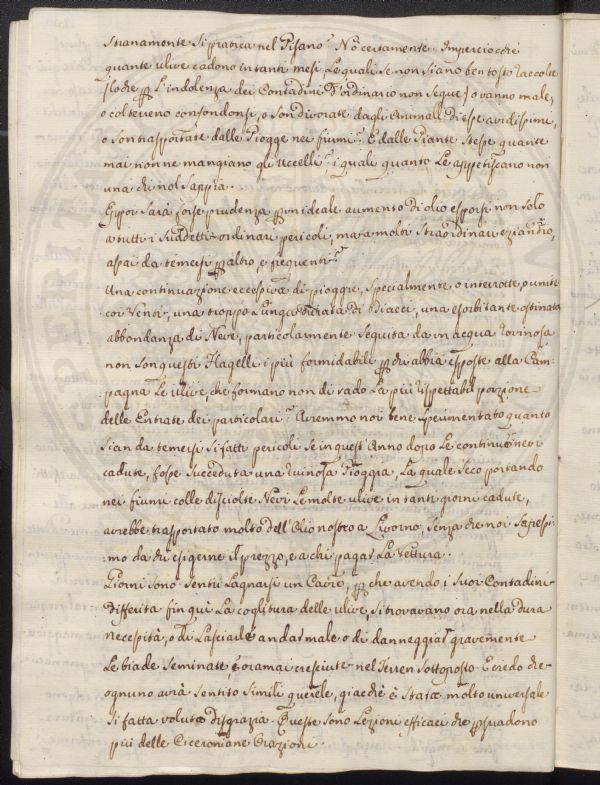 stranamente si pratica nel Pisano? Nò certamente. Imperciocchè
quante ulive cadono in tanti mesi le quali se non siano ben tosto raccolte
(lo che per l'indolenza dei Contadini d'ordinario non segue) o vanno male,
o col terreno confondonsi, o son divorate dagli Animali di esse avidissimi,
o son trasportate dalle Piogge nei fiumi? E dalle Piante stesse quante
mai non ne mangiano gli Uccelli? i quali quanto le appetiscano non
v'ha chi nol sappia.
Eppoi sarà forse prudenza per un ideale aumento di olio esporsi non solo
a tutti i suddetti ordinari pericoli, ma a molti straordinari eziandio,
assai da temersi per altro, e frequenti?
Una continuazione eccessiva di piogge, specialmente o interrotte, o unite
coi Venti, una troppo lunga durata di Diacci, una esorbitante ostinata
abbondanza di Neve, particolarmente seguita da un acqua rovinosa
non son questi flagelli i più formidabili per chi abbia esposte alla Cam-
:pagna le ulive, che formano non di rado la più rispettabil porzione
delle Entrate dei particolari? Avremmo noi bene sperimentato quanto
sian da temersi sì fatti pericoli se in quest'Anno dopo le continue nevi
cadute, fosse succeduta una ruinosa Pioggia, la quale seco portando
nei fiumi colle disciolte Nevi le molte ulive in tanti giorni cadute,
avrebbe trasportato molto dell'Olio nostro a Livorno, senza che noi sapessi-
mo da chi esigerne il prezzo, e a chi pagar la Vettura.
Giorni sono sentii lagnarsi un Cavre, per che avendo i suoi Contadini
differita fin quì la coglitura delle ulive, si trovavano ora nella dura
necessità, o di lasciarle andar male o di danneggiar gravemente
le biade seminate, e oramai cresciute nel Terren sottoposto. E credo che
ognuno avrà sentito simili querele, giacchè è stata molto universale
sì fatta voluta disgrazia. Queste sono lezioni efficaci che persuadono
più delle Ciceroniane Orazioni.